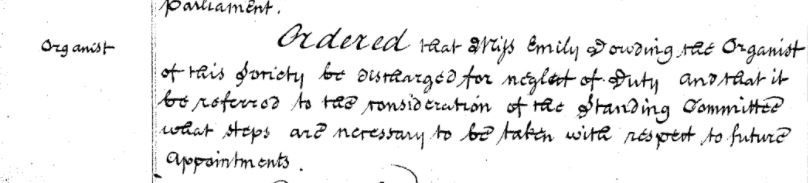 Parliament.
Organist
Ordered that Miss Emily Dowding the Organist
of this Society be discharged for neglect of Duty and that it
be referred to the consideration of the Standing Committee
what steps are necessary to be taken with respect to future
Appointments.